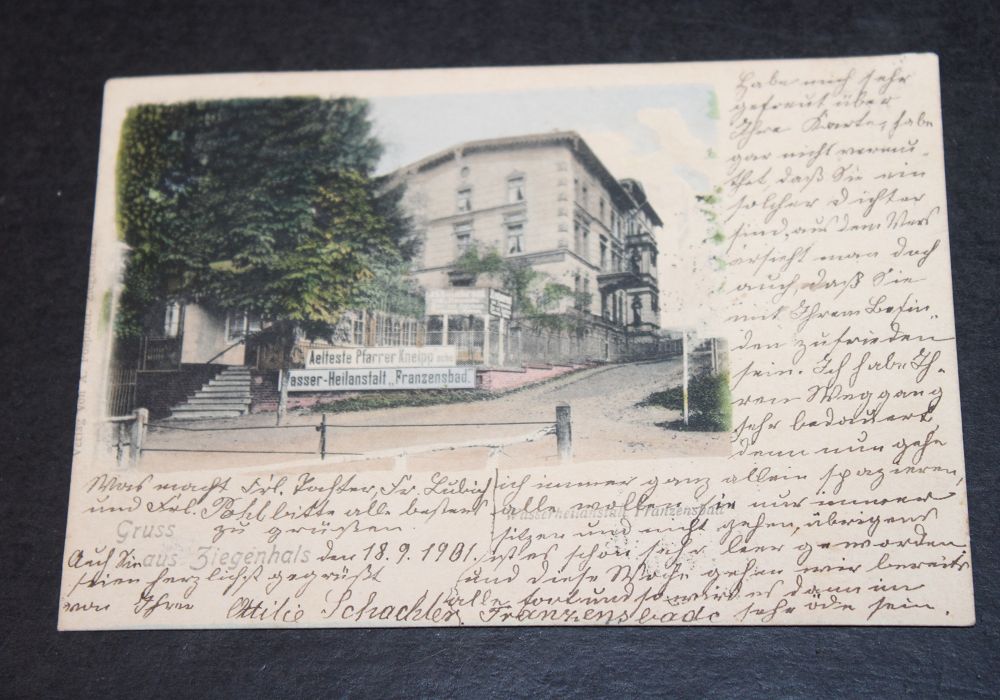 Habe mich sehr
gefreut über
Ihre Karte, habe
gar nicht vermu-
thet, daß Sie ein
solcher Dichter
sind, aus dem Vers
ersieht man doch
auch, daß Sie
mit Ihrem Befin-
den zufrieden
sein. Ich habe Ih-
ren Weggang
sehr bedauert
denn nun gehe
ich immer ganz allein spazieren,
alle wollen sie nur immer
sitzen und nicht gehen, übrigens
ist es schon sehr leer geworden
und diese Woche gehen wir bereits
alle fort und so wird es dann im
Franzensbade sehr öde sein.
Was macht Frl. Fr.
und Frl. bitte alle bestens
zu grüßen.
Auch Sie
seien herzlichst gegrüßt
von Ihrer Ottilie Schachler
den 18.9.1901.
Gruss
aus Ziegenhals
Wasserheilanstalt Franzensbad
Aelteste Pfarrer Kneipp sche
Wasser-Heilanstalt „Franzensbad.
Verlag von